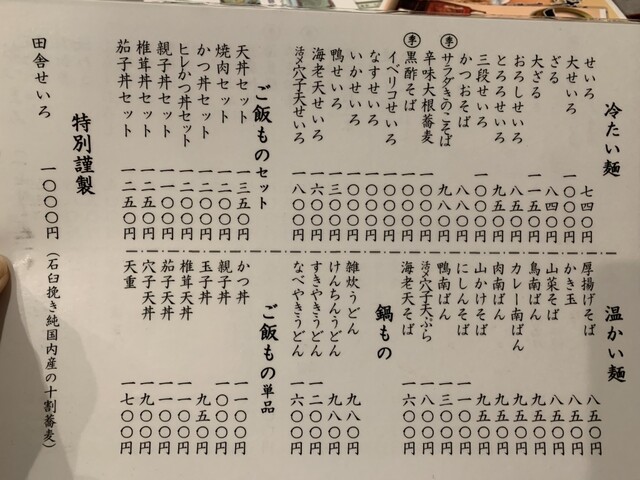 冷たい麺
せいろ 七四〇円
大せいろ 一〇〇〇円
ざる 八四〇円
大ざる 一一五〇円
おろしせいろ 八五〇円
とろろせいろ 九五〇円
三段せいろ 一〇〇〇円
かつおそば 八八〇円
季 サラダきのこそば 九八〇円
辛味大根蕎麦 一〇〇〇円
季 黒酢そば 一〇〇〇円
イベリコせいろ 一〇〇〇円
なすせいろ 一〇〇〇円
いかせいろ 一〇〇〇円
鴨せいろ 一三〇〇円
海老天せいろ 一六〇〇円
活〆穴子天せいろ 一八〇〇円
ご飯ものセット
天丼セット 一三五〇円
焼肉セット 一二〇〇円
かつ丼セット 一二〇〇円
ヒレかつ丼セット 一二〇〇円
親子丼セット 一一〇〇円
椎茸丼セット 一二五〇円
茄子丼セット 一二五〇円
温かい麺
厚揚げそば 八五〇円
かき玉 八五〇円
山菜そば 八五〇円
鳥南ばん 九五〇円
カレー南ばん 九五〇円
肉南ばん 九五〇円
山かけそば 九五〇円
にしんそば 一一〇〇円
鴨南ばん 一三〇〇円
活〆穴子天ぷら 一八〇〇円
海老天そば 一六〇〇円
鍋もの
雑炊うどん 九八〇円
けんちんうどん 九八〇円
すきやきうどん 一二〇〇円
なべやきうどん 一六〇〇円
ご飯もの単品
かつ丼 一一〇〇円
親子丼 一〇〇〇円
玉子丼 九五〇円
椎茸天丼 一一〇〇円
茄子天丼 一一〇〇円
穴子天丼 一九〇〇円
天重 一七〇〇円
特別謹製
田舎せいろ 一〇〇〇円(石臼挽き純国内産の十割蕎麦)